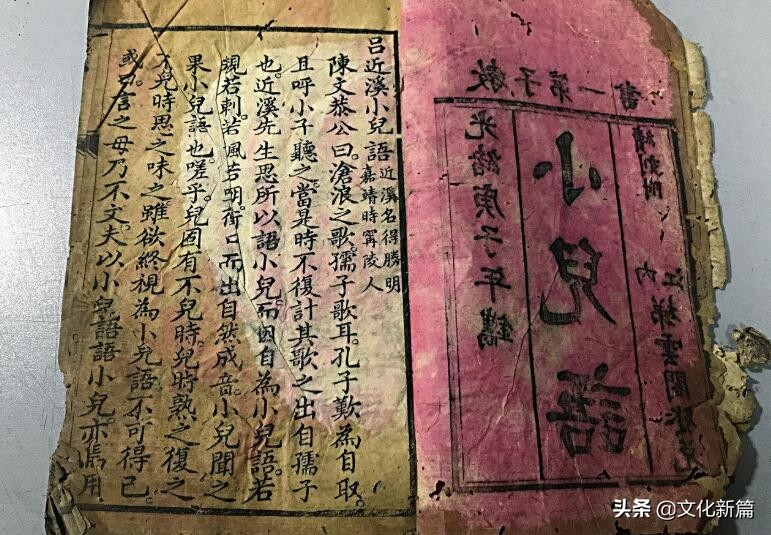 教子第一書
光緒庚子年鐫
小兒語
續刻附
內
雲閣發兌
呂近溪小兒語
近溪名得勝明
嘉靖時甯陵人
陳文恭公曰。滄浪之歌。孺子歌耳。孔子歎為自取。
且呼小子聽之。當是時不復計其歌之出自孺子
也。近溪先生思所以語小兒。而因自為小兒語。若
規若刺。若風若明。衝口而出。自然成音。小兒聞之
果小兒語也。嗟乎。兒固有不兒時。兒時熟之復之
不兒時思之味之。雖欲終視為小兒語。不可得已。
或曰。言之毋乃不文。夫以小兒語語小兒。亦焉用
头条 @文化新篇